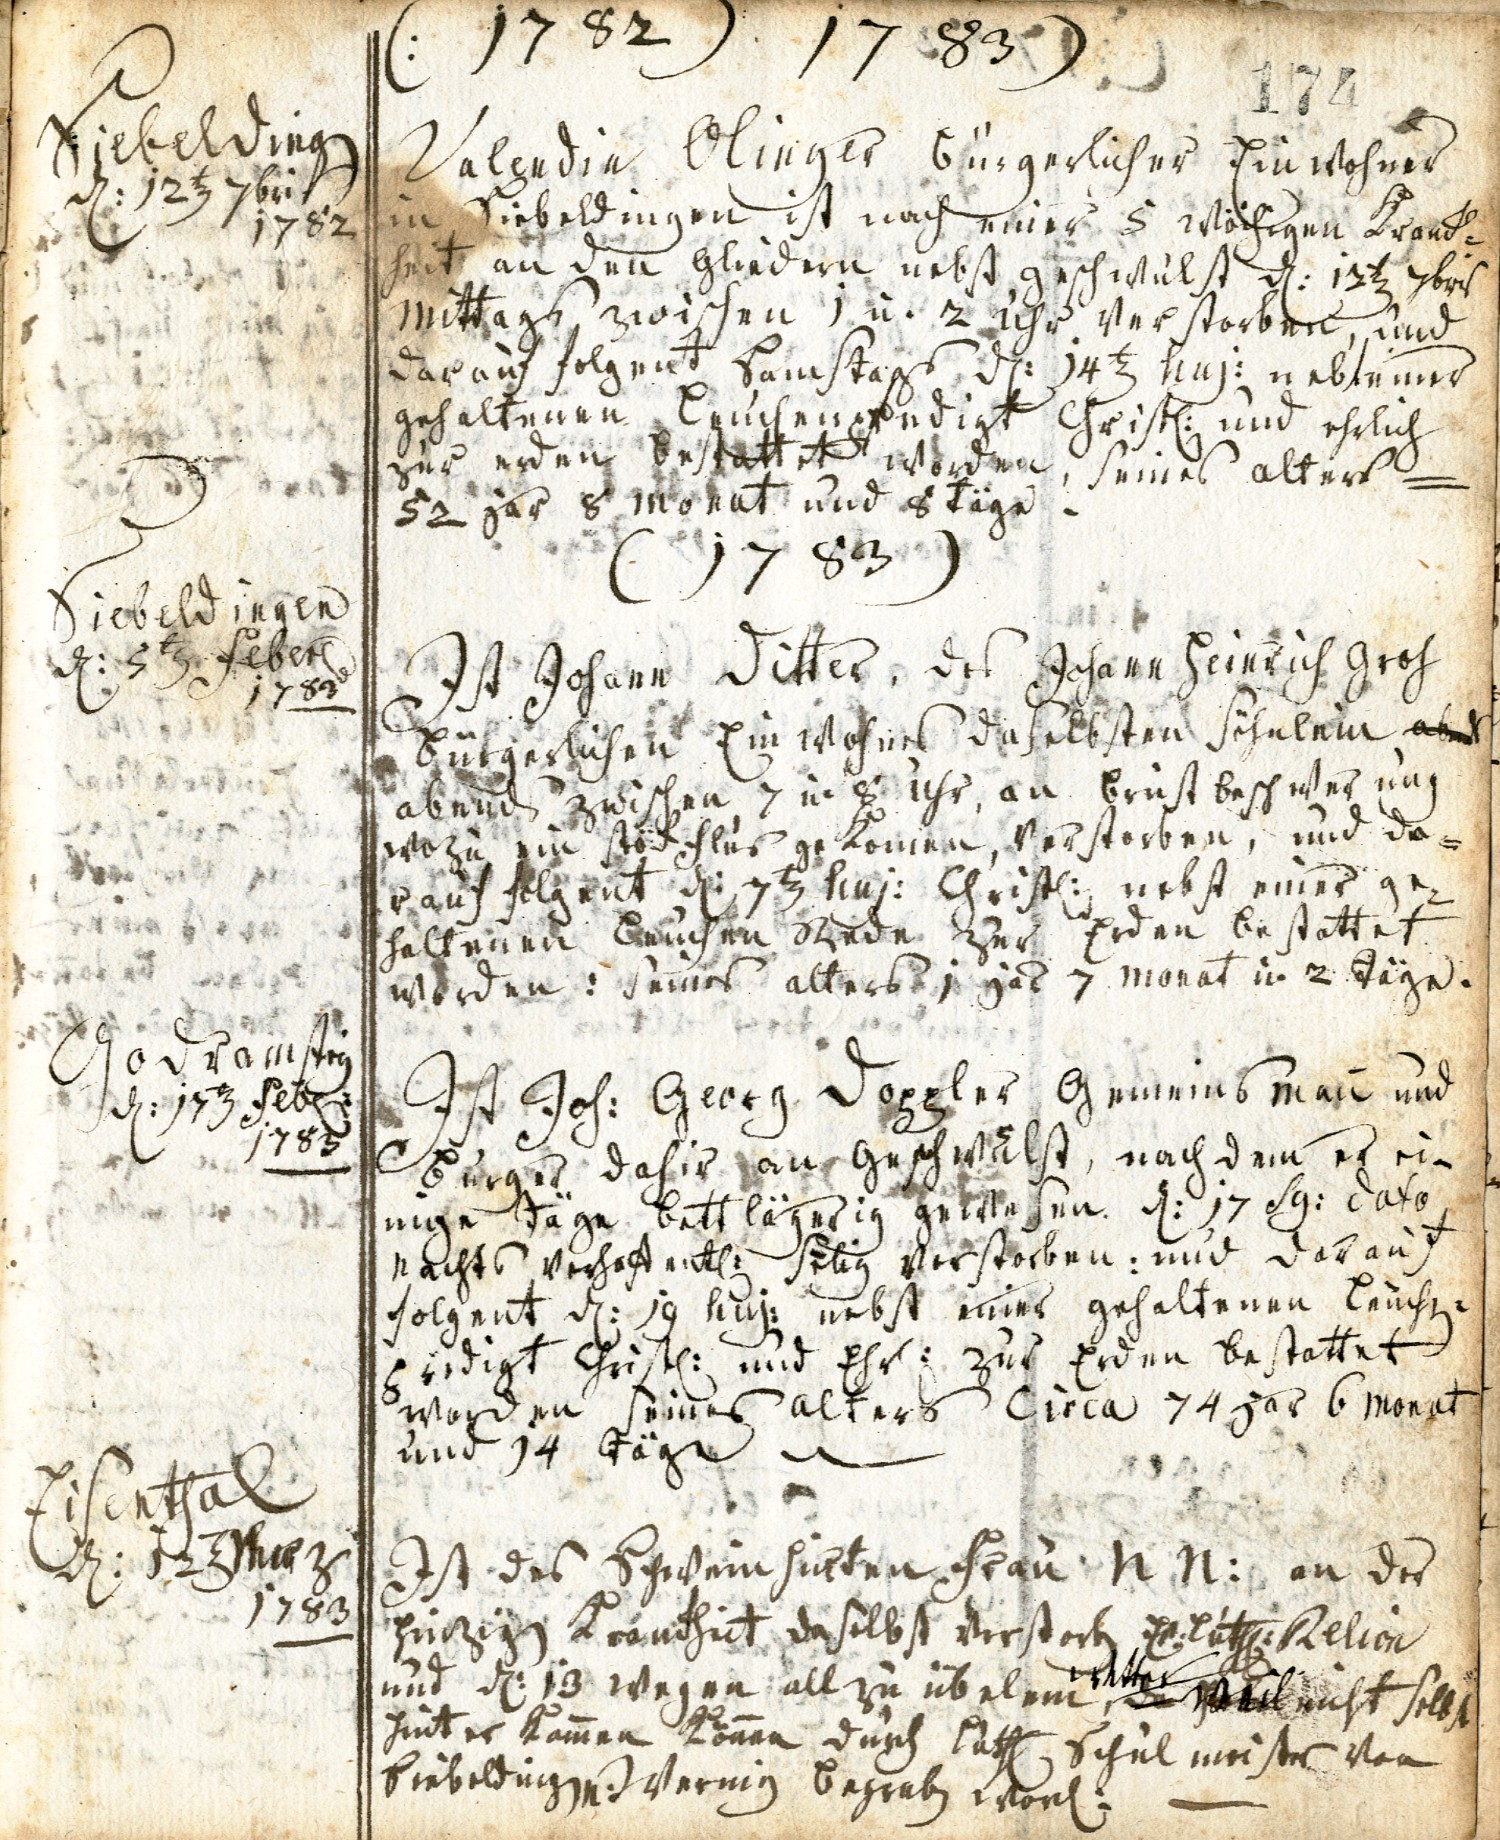 (: 1782) 1783)
174
Siebelding
d: 12t 7bris
1782
Valendin Olinger bürgerlicher Einwohner
in Siebeldingen ist nach einer 5 wöchigen Kranck=
heit an den Gliedern nebst geschwulst d: 12t 7bris
mittags zwischen 1 u. 2 uhr verstorben, und
darauf folgent Samstags d: 14t huj: nebst einer
gehaltenen Leuchenpredigt Christl: und ehrlich
zur erden bestattet worden, seines alters =
52 jar 8 monat und 8 täge.
(1783)
Siebeldingen
d: 5t Feber
1783
Ist Johann Ditter, des Johann Heinrich Groh
bürgerlichen Einwohner daselbsten söhnlein
abends zwischen 7 u. 8 uhr, an brustbeschwerung
wozu ein stöckflus gekomen, verstorben, und da=
rauf folgent d: 7t huj: Christl: nebst einer ge=
haltenen Leuchen Rede zur Erden bestattet
worden: seines alters 1 jar 7 monat u. 2 täge.
Godramstein
d: 17t Febr:
1783
Ist Joh: Georg Doppler Gemeinsmañ und
burger dahir an Geschwulst, nach dem er ei=
nige täge bettlägerig gewesen. d: 17 dato
Nachts verhoffentl: selig verstorben: und darauf
folgent d: 19 huj: nebst einer gehaltenen Leuch=
predigt Christl: und Ehr: zur Erden bestattet
worden seines alters Circa 74 jar 6 monat
und 14 täge
Eisenthal
d: 12t Merz
1783
Ist des Schweinhirten Frau N N: an der
hitzign Kranckheit daselbst verstorbn Ev: Luth: Relion
und d: 13 wegen allzu übelem wetter weil nicht selbst
hinter kom̅en kön̅en durch luth Schulmeister von
Siebeldingn Wernig begrabn word: